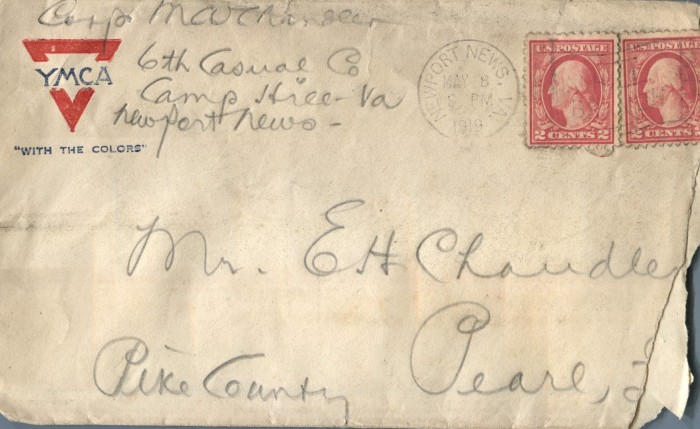 Corp MW Chandler
6th Casual Co
Camp Hill - Va
Newport News -
YMCA
"WITH THE COLORS"
NEWPORT NEWS, VA.
MAY 8
PM
1919
U.S. POSTAGE
2 CENTS 2
U.S. POSTAGE
2 CENTS 2
Mr. E H Chandler
Pearl,
Pike County